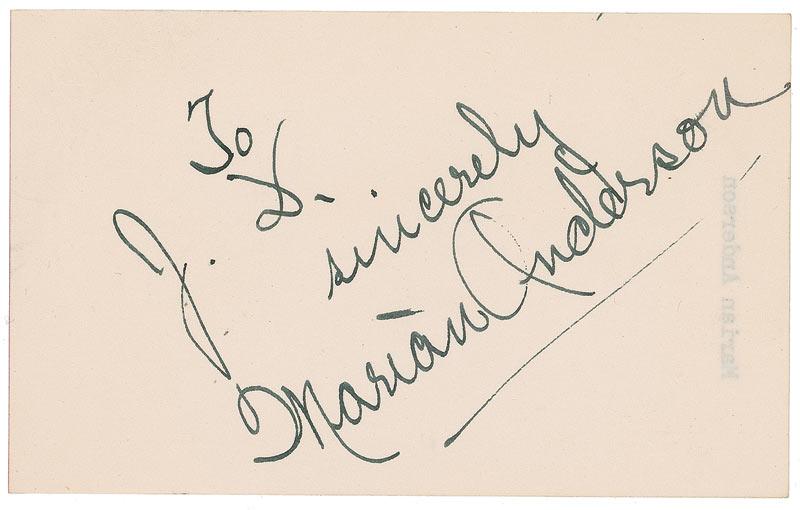 To
J. D.
sincerely
Marian Anderson
Marian Anderson